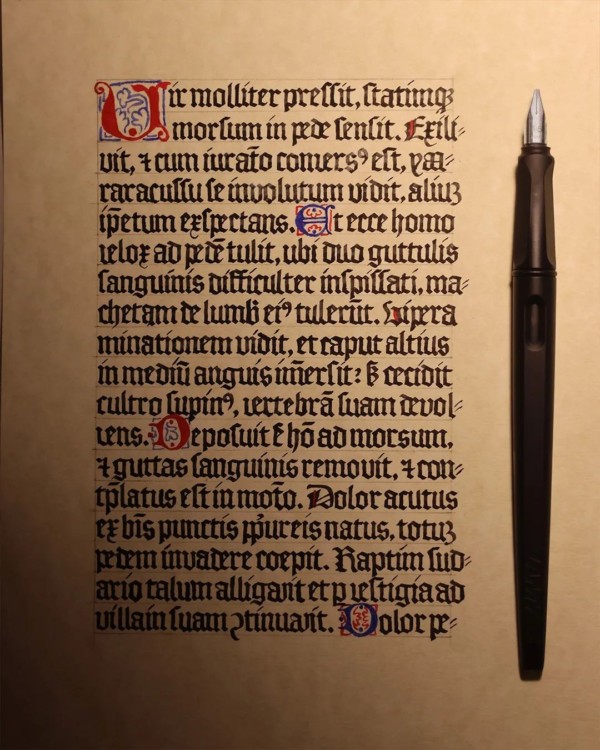 Vir molliter pressit, statimqꝫ
morsum in pede sensit. Exili⸗
vit, ⁊ cum iurat̄o conversꝰ est, yaa⸗
raracussu se involutum vidit, aliuꝫ
ip̄etum exspectans. Et ecce homo
velox ad pedē tulit, ubi duo guttulis
sanguinis difficulter inspissati, ma⸗
chetam de lumb̄ eiꝰ tulerūt. Vipera
minationem vidit, et caput altius
in mediū anguis im̄ersit: s̄ cecidit
cultro supinꝰ, vertebrā suam devol⸗
vens. Deposuit hō ad morsum,
⁊ guttas sanguinis removit, ⁊ con⸗
tp̄latus est in mot̄o. Dolor acutus
ex bīs punctis pp̄ureis natus, totuꝫ
pedem invadere coepit. Raptim sud⸗
ario talum alligavit et p vestigia ad
villain suam ꝯtinuavit. Dolor pe⸗
LAMY